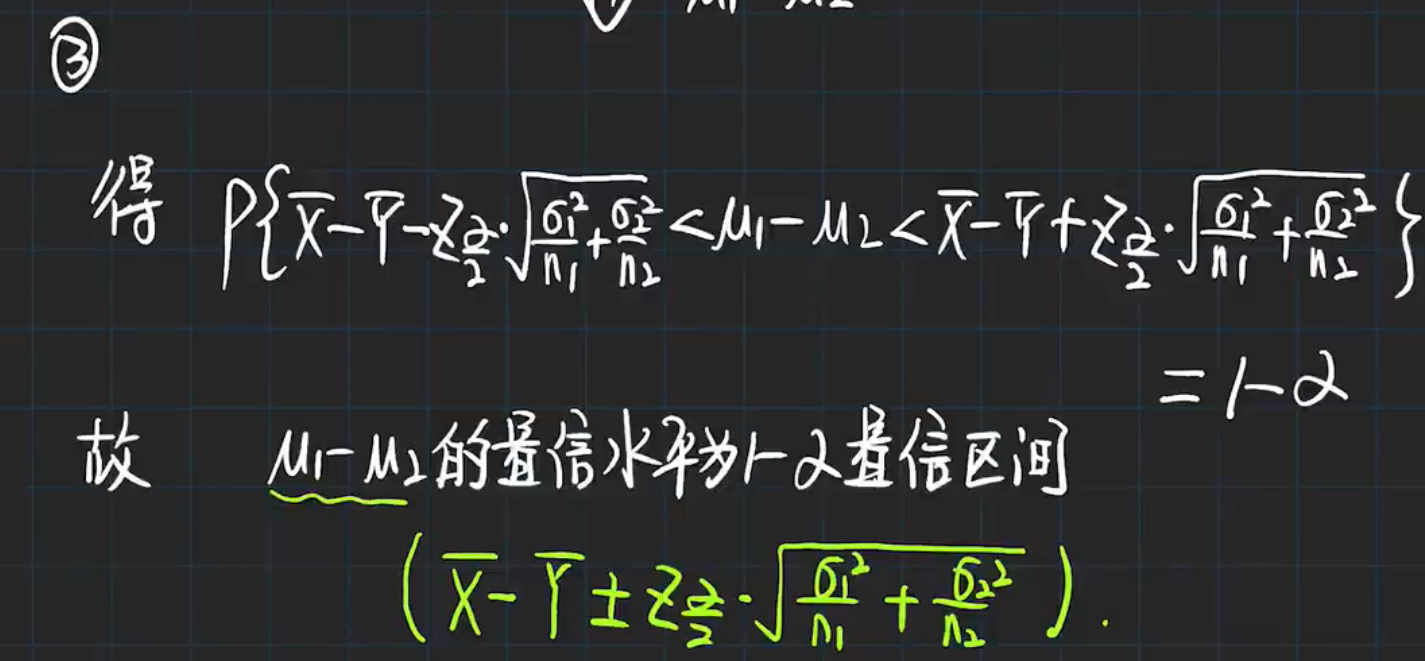 μ₁ μ₂
③
得 P{X̄-Ȳ-z_{α/2}·√(σ₁²/n₁+σ₂²/n₂)<μ₁-μ₂<X̄-Ȳ+z_{α/2}·√(σ₁²/n₁+σ₂²/n₂)}
=1-α
故 μ₁-μ₂的置信水平为1-α置信区间
(X̄-Ȳ±z_{α/2}·√(σ₁²/n₁+σ₂²/n₂)).